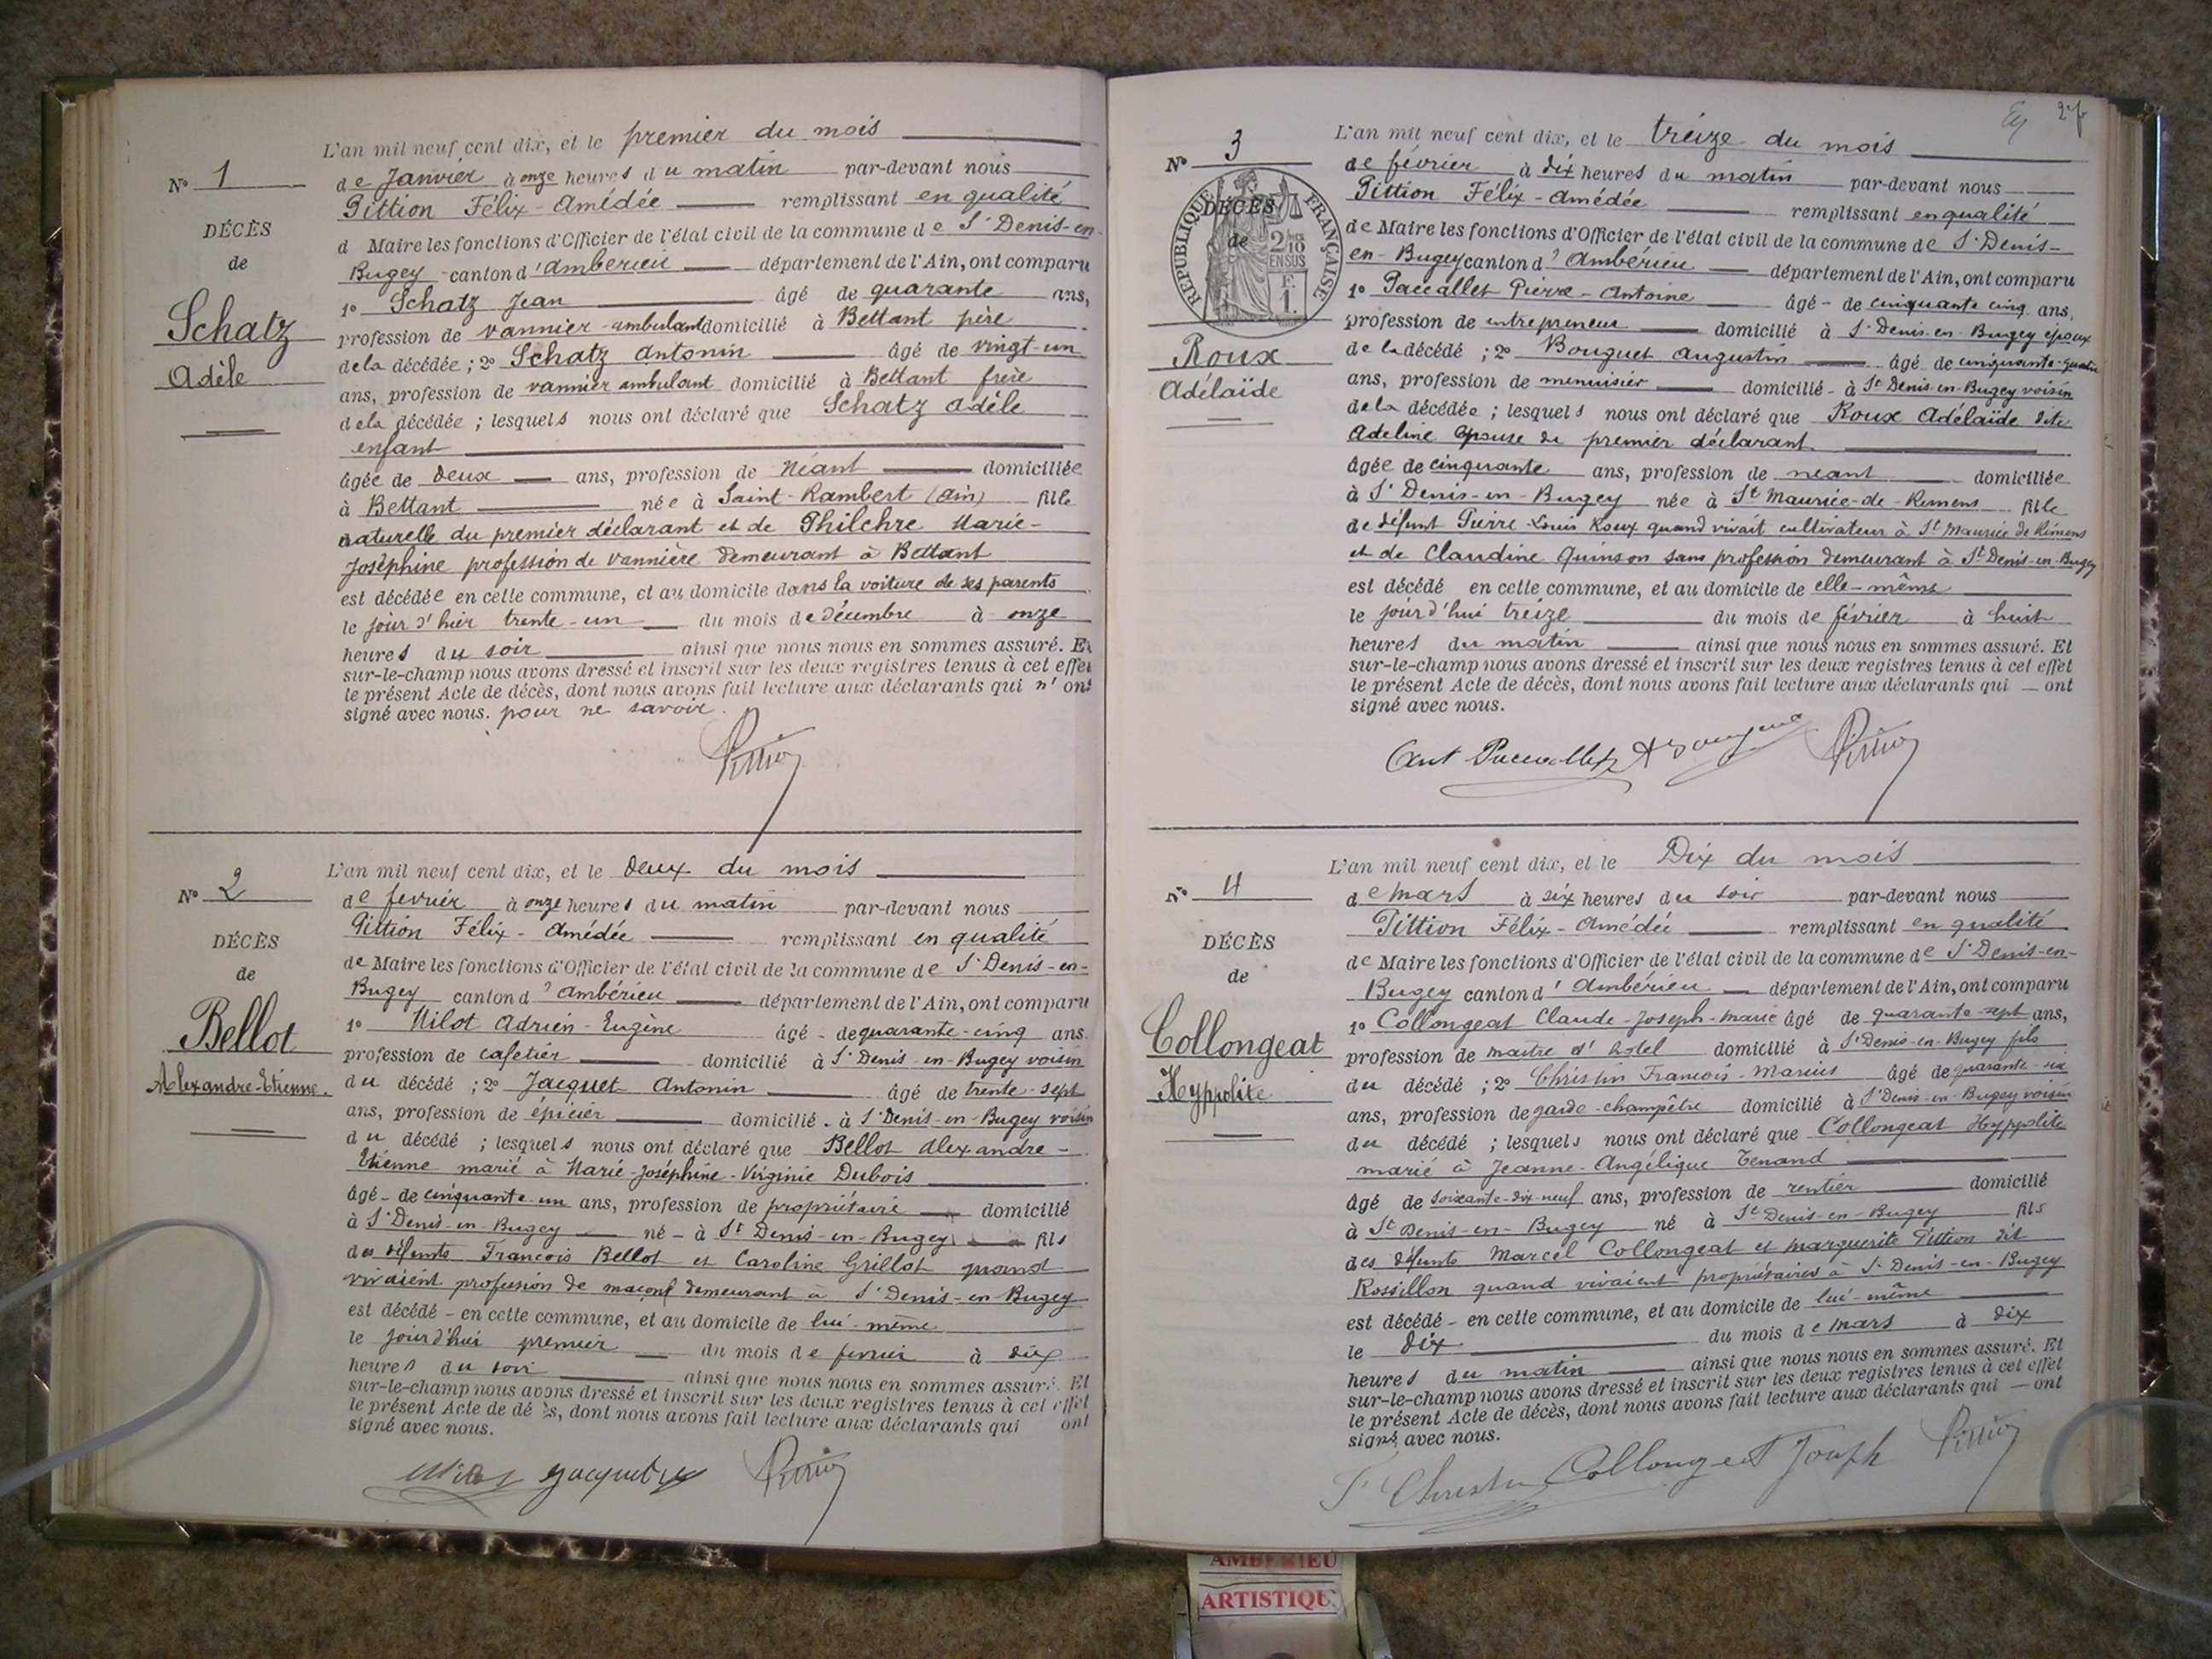 L'an mil neuf cent dix, et le premier du mois
N° 1
de Janvier à onze heures du matin par-devant nous
Pittion Félix-Amédée remplissant en qualité
DÉCÈS
d Maire les fonctions d'Officier de l'état civil de la commune de St Denis-en-
de
Bugey canton d'Ambérieu département de l'Ain, ont comparu
Schatz
1° Schatz Jean âgé de quarante ans,
profession de vannier-ambulant domicilié à Bettant père
Adèle
de la décédée ; 2° Schatz Antonin âgé de vingt-un
ans, profession de vannier ambulant domicilié à Bettant frère
de la décédée ; lesquels nous ont déclaré que Schatz Adèle
enfant
âgée de deux ans, profession de Néant domiciliée
à Bettant née à Saint-Rambert (Ain) fille
naturelle du premier déclarant et de Philchre Marie-
Joséphine profession de vannière demeurant à Bettant
est décédée en cette commune, et au domicile dans la voiture de ses parents
le jour d'hier trente-un du mois de décembre à onze
heures du soir ainsi que nous nous en sommes assuré. Et
sur-le-champ nous avons dressé et inscrit sur les deux registres tenus à cet effet
le présent Acte de décès, dont nous avons fait lecture aux déclarants qui n'ont
signé avec nous. pour ne savoir.
Pittion
L'an mil neuf cent dix, et le deux du mois
N° 2
de fevrier à onze heures du matin par-devant nous
Pittion Félix-Amédée remplissant en qualité
DÉCÈS
de Maire les fonctions d'Officier de l'état civil de la commune de St Denis-en-
de
Bugey canton d'Ambérieu département de l'Ain, ont comparu
Bellot
1° Milot Adrien-Eugène âgé - de quarante-cinq ans
profession de cafetier domicilié à St Denis-en-Bugey voisin
Alexandre-Etienne.
du décédé ; 2° Jacquet Antonin âgé de trente-sept
ans, profession de épicier domicilié - à St Denis-en-Bugey voisin
du décédé ; lesquels nous ont déclaré que Bellot Alexandre-
Etienne marié à Marie-Joséphine-Virginie Dubois
âgé - de cinquante-un ans, profession de propriétaire domicilié
à St Denis-en-Bugey né - à St Denis-en-Bugey fils
des défunts Francois Bellot et Caroline Grillot quand
vivaient profession de maçons demeurant à St Denis-en-Bugey
est décédé - en cette commune, et au domicile de lui-même
le jour d'hui premier du mois de fevrier à dix
heures du soir ainsi que nous nous en sommes assuré. Et
sur-le-champ nous avons dressé et inscrit sur les deux registres tenus à cet effet
le présent Acte de décès, dont nous avons fait lecture aux déclarants qui ont
signé avec nous.
Milot Jacquet Pittion
27
L'an mil neuf cent dix, et le treize du mois
N° 3
de février à dix heures du matin par-devant nous
Pittion Félix-Amédée remplissant en qualité
RÉPUBLIQUE FRANÇAISE
2/10 EN SUS
F. 1.
DÉCÈS
de Maire les fonctions d'Officier de l'état civil de la commune de St Denis-
de
en-Bugey canton d'Ambérieu département de l'Ain, ont comparu
1° Paccallet Pierre-Antoine âgé - de cinquante cinq ans,
profession de entrepreneur domicilié à St Denis-en-Bugey époux
Roux
de la décédé ; 2° Bouguet Augustin âgé de cinquante-quatre
Adélaïde
ans, profession de menuisier domicilié - à St Denis-en-Bugey voisin
de la décédée ; lesquels nous ont déclaré que Roux Adélaïde dite
Adeline épouse du premier déclarant
âgée de cinquante ans, profession de néant domiciliée
à St Denis-en-Bugey née à St Maurice-de-Rémens fille
de défunt Pierre-Louis Roux quand vivait cultivateur à St Maurice de Rémens
et de Claudine Quinson sans profession demeurant à St Denis-en-Bugey
est décédé en cette commune, et au domicile de elle-même
le jour d'hui treize du mois de février à huit
heures du matin ainsi que nous nous en sommes assuré. Et
sur-le-champ nous avons dressé et inscrit sur les deux registres tenus à cet effet
le présent Acte de décès, dont nous avons fait lecture aux déclarants qui — ont
signé avec nous.
Ant Paccallet Pittion
L'an mil neuf cent dix, et le Dix du mois
N° 4
de mars à six heures du soir par-devant nous
Pittion Félix-Amédée remplissant en qualité
DÉCÈS
de Maire les fonctions d'Officier de l'état civil de la commune de St Denis-en-
de
Bugey canton d'Ambérieu département de l'Ain, ont comparu
Collongeat
1° Collongeat Claude-Joseph-Marie âgé de quarante-sept ans,
profession de maître d'hôtel domicilié à St Denis-en-Bugey fils
Hyppolite
du décédé ; 2° Christin Francois-Marius âgé de quarante-six
ans, profession de garde-champêtre domicilié à St Denis-en-Bugey voisin
du décédé ; lesquels nous ont déclaré que Collongeat Hyppolite
marié à Jeanne-Angélique Tenand
âgé de soixante-dix-neuf ans, profession de rentier domicilié
à St Denis-en-Bugey né à St Denis-en-Bugey fils
des défunts Marcel Collongeat et Marguerite Pittion dit
Rossillon quand vivaient propriétaires à St Denis-en-Bugey
est décédé - en cette commune, et au domicile de lui-même
le Dix du mois de mars à dix
heures du matin ainsi que nous nous en sommes assuré. Et
sur-le-champ nous avons dressé et inscrit sur les deux registres tenus à cet effet
le présent Acte de décès, dont nous avons fait lecture aux déclarants qui — ont
signé avec nous.
F. Christin Collongeat Joseph Pittion
AMBERIEU
ARTISTIQU